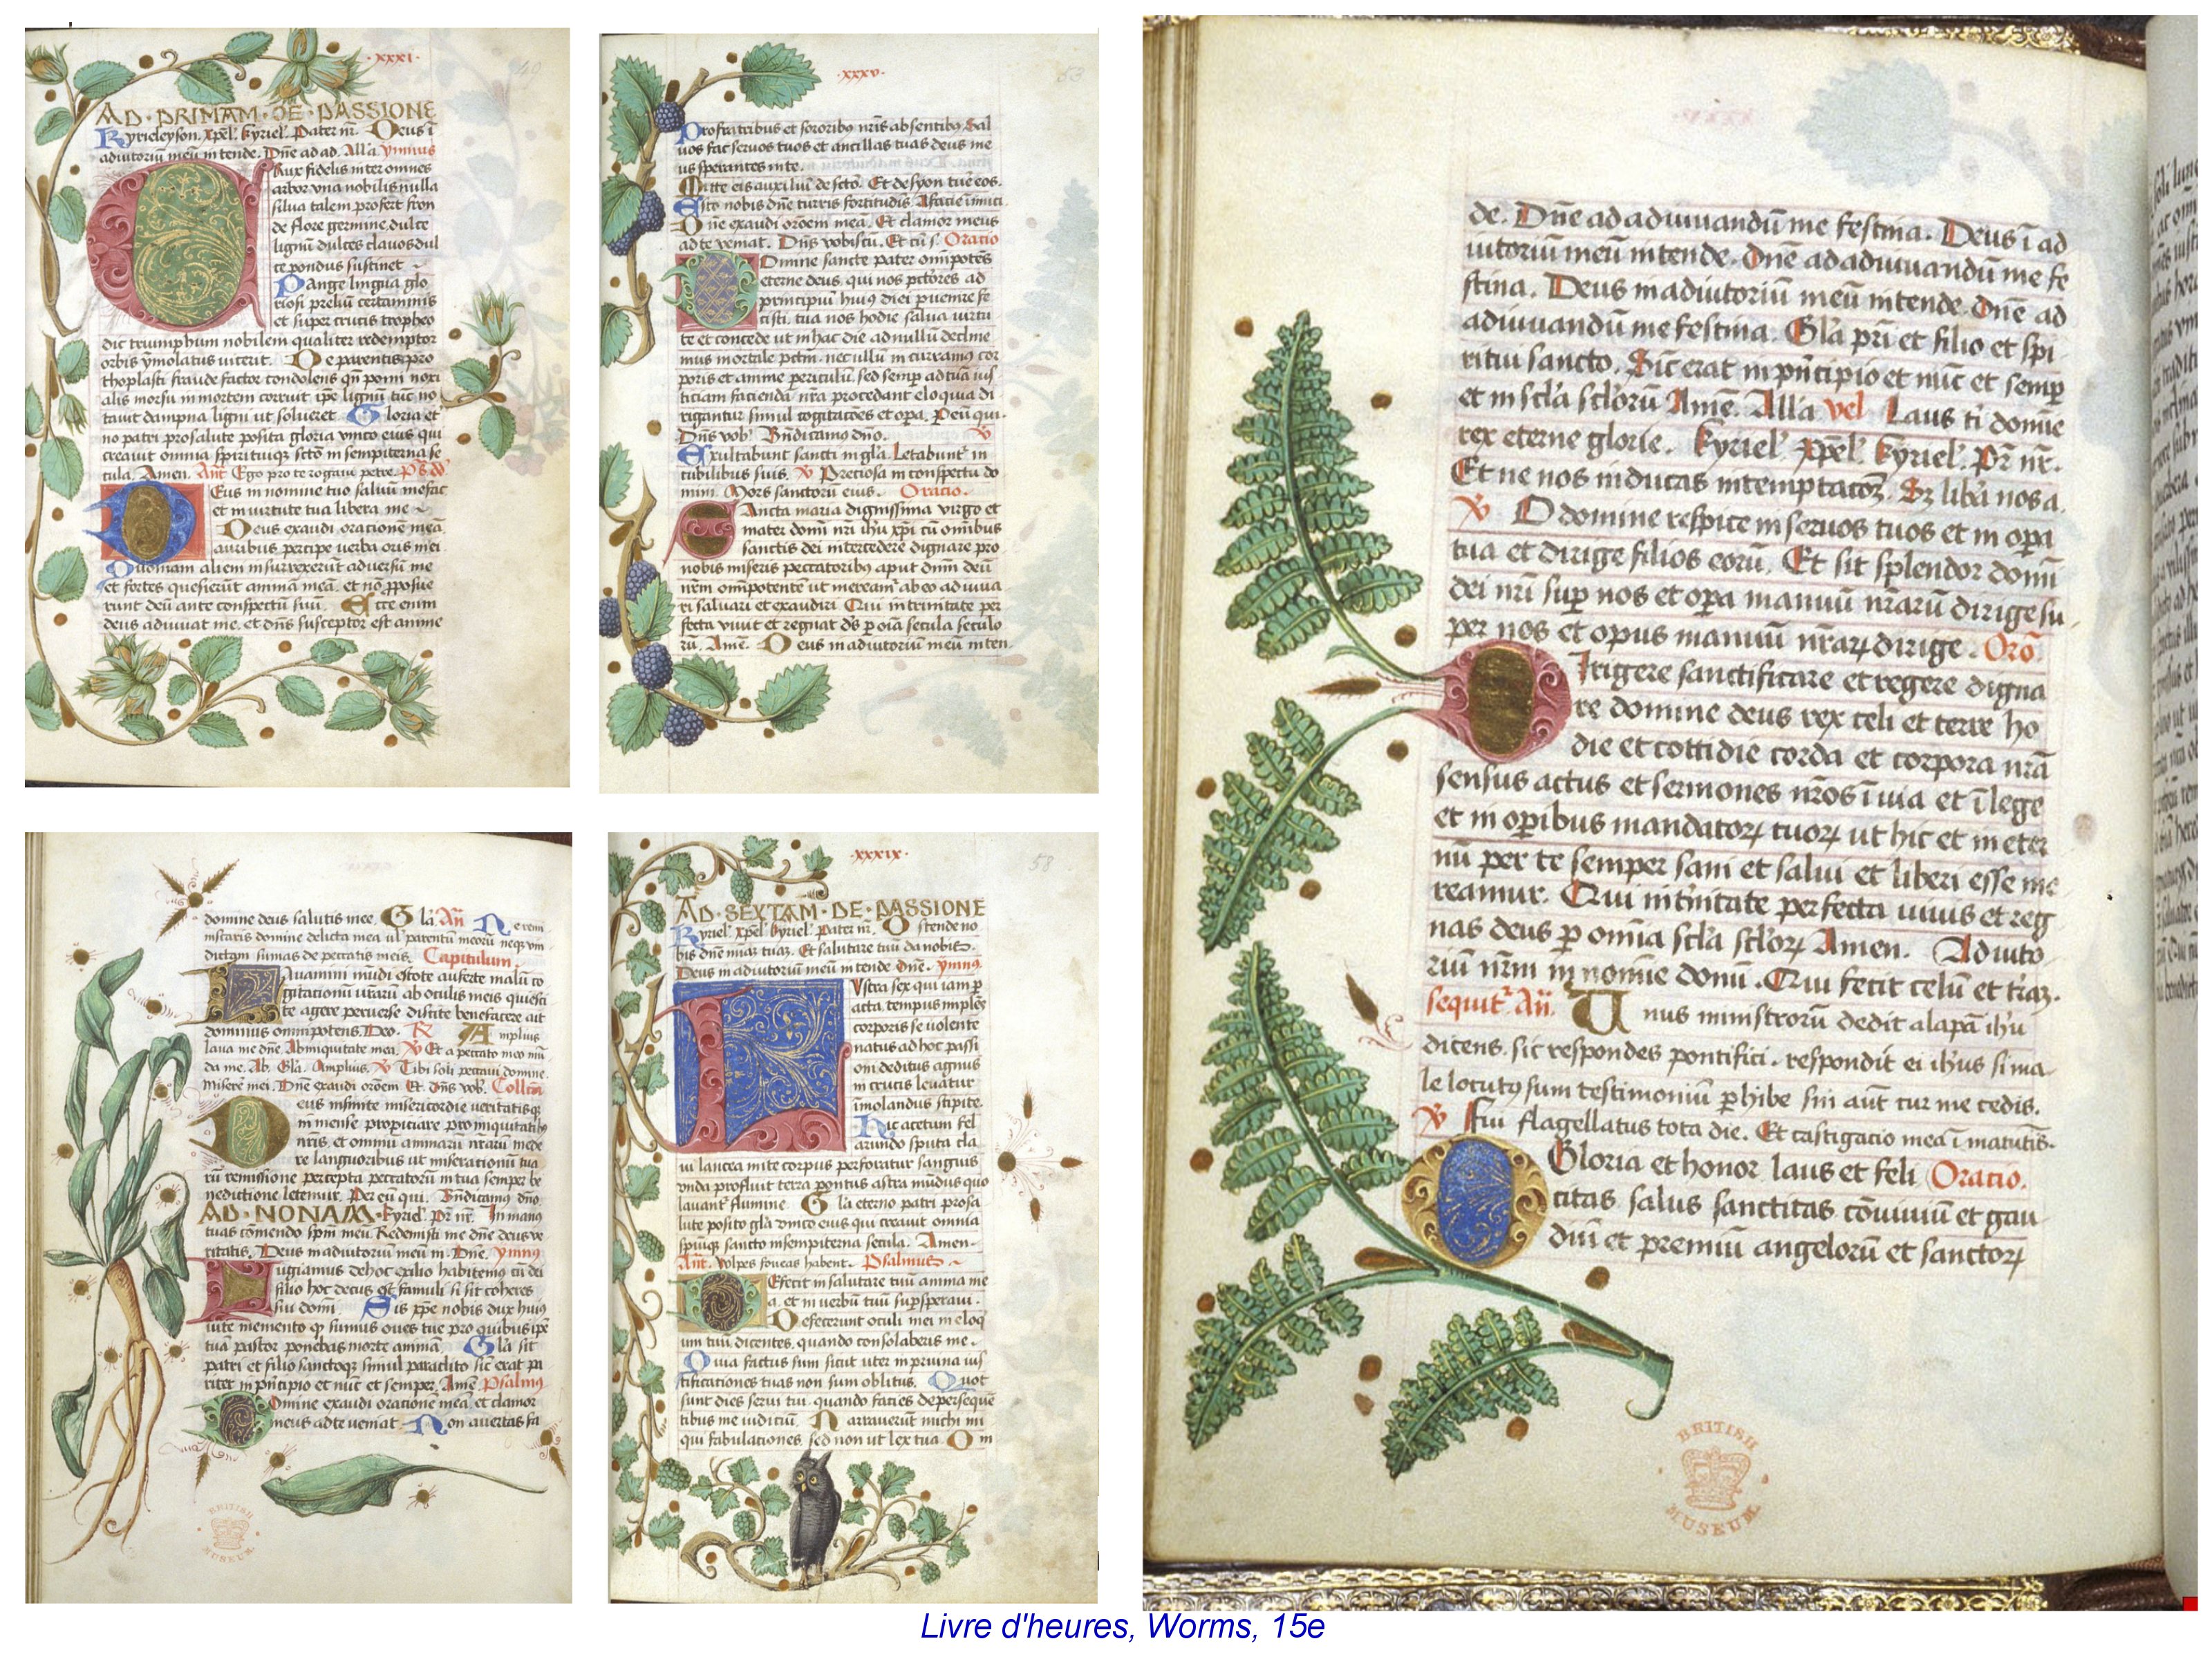 ·xxxi·
49
AD·PRIMAM·DE·PASSIONE
Kyrieleyson. xpel. kyriel. Pater nr. Deus i
adiutoriū meū intende. Dne ad ad. All'a ymnus
Crux fidelis inter omnes
arbor vna nobilis nulla
silua talem profert fron
de flore germine, dulce
lignū dulces clauos dul
ce pondus sustinet
Pange lingua glo
riosi preliū certaminis
et super crucis tropheo
dic triumphum nobilem qualiter redemptor
orbis ymolatus uicerit. De parentis pro
thoplasti fraude factor condolens qn pomi noxi
alis morsu in mortem corruit ipe lignū tuc no
tauit dampna ligni ut solueret Gloria et
no patri pro salute posita gloria vnico eius qui
creauit omnia spirituiqz scto in sempiterna se
cula. Amen. Ant Ego pro te rogaui petre. Ps dd
Deus in nomine tuo saluū me fac
et in uirtute tua libera me
Deus exaudi orationē meā
auribus percipe uerba oris mei
Quoniam alieni insurrexerūt aduersū me
et fortes quesierūt animā meā, et nō proposue
runt deū ante conspectū suū. Ecce enim
deus adiuuat me, et dns susceptor est anime
·xxxv·
53
Pro fratribus et sororibus nris absentibus, Sal
uos fac seruos tuos et ancillas tuas deus me
us sperantes in te.
Mitte eis auxiliū de scto. Et de syon tue eos.
Esto nobis dne turris fortitudis. A facie inimici
Dne exaudi oroem meā. Et clamor meus
ad te veniat. Dns vobiscū. Et cū s. Oratio
Domine sancte pater omipotes
eterne deus, qui nos pctores ad
principiū huius diei puenire fe
cisti, tua nos hodie salua uirtu
te et concede ut in hac die ad nullū decline
mus mortale pctm. nec ullū incurramus cor
poris et anime periculū, sed semp ad tuā ius
ticiam faciendā nra procedant eloquia di
rigantur simul cogitacōes et opa. Peū qui.
Dns vob. Bndicamus dno. V
Exultabunt sancti in gla. Letabunt in
cubilibus suis. V Preciosa in conspectu do
mini. Mors sanctorū eius. Oratio.
Sancta maria dignissima virgo et
mater domi nri ihu xpi cū omibus
sanctis dei intercedere dignare pro
nobis miseris peccatoribus aput dnm deū
nrm omipotente ut mereamur ab eo adiuua
ri saluari et exaudiri Qui in trinitate per
fecta viuit et regnat ds p oia secula seculo
rū. Ame. Deus in adiutoriū meū inten
domine deus salutis mee. Gla An Ne remi
niscaris domine delicta mea ul parentū meorū neqz vin
dictam sumas de peccatis meis. Capitulum.
Lauamini mūdi estote auferte malū co
gitationū urarū ab oculis meis quiesci
te agere peruerse discite benefacere ait
dominus omnipotens. Deo. R Amplius
laua me dne. Ab iniquitate mea. V Et a peccato meo mū
da me. Ab. Gla. Amplius. V Tibi soli peccaui domine.
Misere mei. Dne exaudi oroem. Et. Dns vob. Collcta
Deus infinite misericordie ueritatisqz
immense propiciare pro iniquitatibus
nris, et omniū animarū nrarū mede
re languoribus ut miserationū tua
rū remissione percepta peccatorū in tua semper be
nedictione letemur. Per eū qui. Bndicamus dno.
AD·NONAM·Kyriel. Pr nr. In manus
tuas cōmendo spm meu. Redemisti me dne deus ve
ritatis. Deus in adiutoriū meū in. Dne. ymnus
Fugiamus de hoc exilio habitemus cū dei
filio hoc decus est famuli si sit coheres
sui domi. Sis xpe nobis dux huius
uite memento qz sumus oues tue pro quibus ipe
tuā pastor ponebas morte animā. Gla sit
patri et filio sanctoqz simul paraclito sic erat pa
riter in principio et nunc et semper. Ame Psalmus
Domine exaudi orationē meā, et clamor
meus ad te ueniat. Non auertas fa
BRITISH MUSEUM
·xxxix·
58
AD·SEXTAM·DE·PASSIONE
Kyriel. xpel. kyriel. Pater nr. Ostende no
bis dne miaz tuaz. Et salutare tuū da nobis.
Deus in adiutoriū meū intende. Dne. ymnus
Lustra sex qui iam p
acta, tempus implēs
corporis se uolente
natus ad hoc passi
oni deditus agnus
in crucis leuatur
imolandus stipite.
Hic acetum fel
arundo sputa cla
ui lancea mite corpus perforatur sanguis
vnda profluit terra pontus astra mūdus quo
lauant flumine. Gla eterno patri pro sa
lute posito gla vnico eius qui creauit omnia
spiuiqz sancto in sempiterna secula. Amen.
Ant. Volpes foueas habent. Psalmus
Defecit in salutare tuū anima me
a, et in uerbū tuū supsperaui.
Defecerunt oculi mei in eloq
um tuū dicentes, quando consolaberis me.
Quia factus sum sicut uter in pruina ius
tificationes tuas non sum oblitus. Quot
sunt dies serui tui, quando facies de perseque
tibus me iudiciū. Narrauerūt michi ini
qui fabulationes, sed non ut lex tua. Om
de. Dne ad adiuuandū me festina. Deus i ad
iutoriū meū intende. Dne ad adiuuandū me fe
stina. Deus in adiutoriū meū intende. Dne ad
adiuuandū me festina. Gla pri et filio et spi
ritui sancto. Sic erat in principio et nūc et semp
et in scla sclorū Ame. All'a vel Laus ti domie
rex eterne glorie. Kyriel. xpel. Kyriel. Pr nr.
Et ne nos inducas in temptacōz. Sz liba nos a.
V D domine respice in seruos tuos et in opa
tua et dirige filios eorū. Et sit splendor domi
dei nri sup nos et opa manuū nrarū dirige su
per nos et opus manuū nrarz dirige. Oro.
Dirigere sanctificare et regere digna
re domine deus rex celi et terre ho
die et cottidie corda et corpora nrā
sensus actus et sermones nros i uia et i lege
et in opibus mandatorz tuorz ut hic et in eter
nū per te semper sani et salui et liberi esse me
reamur. Qui in tnitate perfecta uiuis et reg
nas deus p omia scla sclorz Amen. Adiuto
riū nrm in nomie domi. Qui fecit celū et traz.
sequit. An. Unus ministrorū dedit alapā ihu
dicens. sic respondes pontifici. respondit ei ihus si ma
le locutus sum testimoniū phibe sin aut cur me cedis.
V Fui flagellatus tota die. Et castigacio mea i matutis.
Gloria et honor laus et feli Oratio.
citas salus sanctitas cōuiuiū et gau
diū et premiū angelorū et sanctorz
BRITISH MUSEUM
Livre d'heures, Worms, 15e